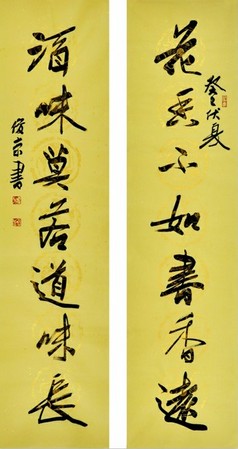 癸巳伏夏
花香不如書香遠
酒味莫若道味長
俊京書